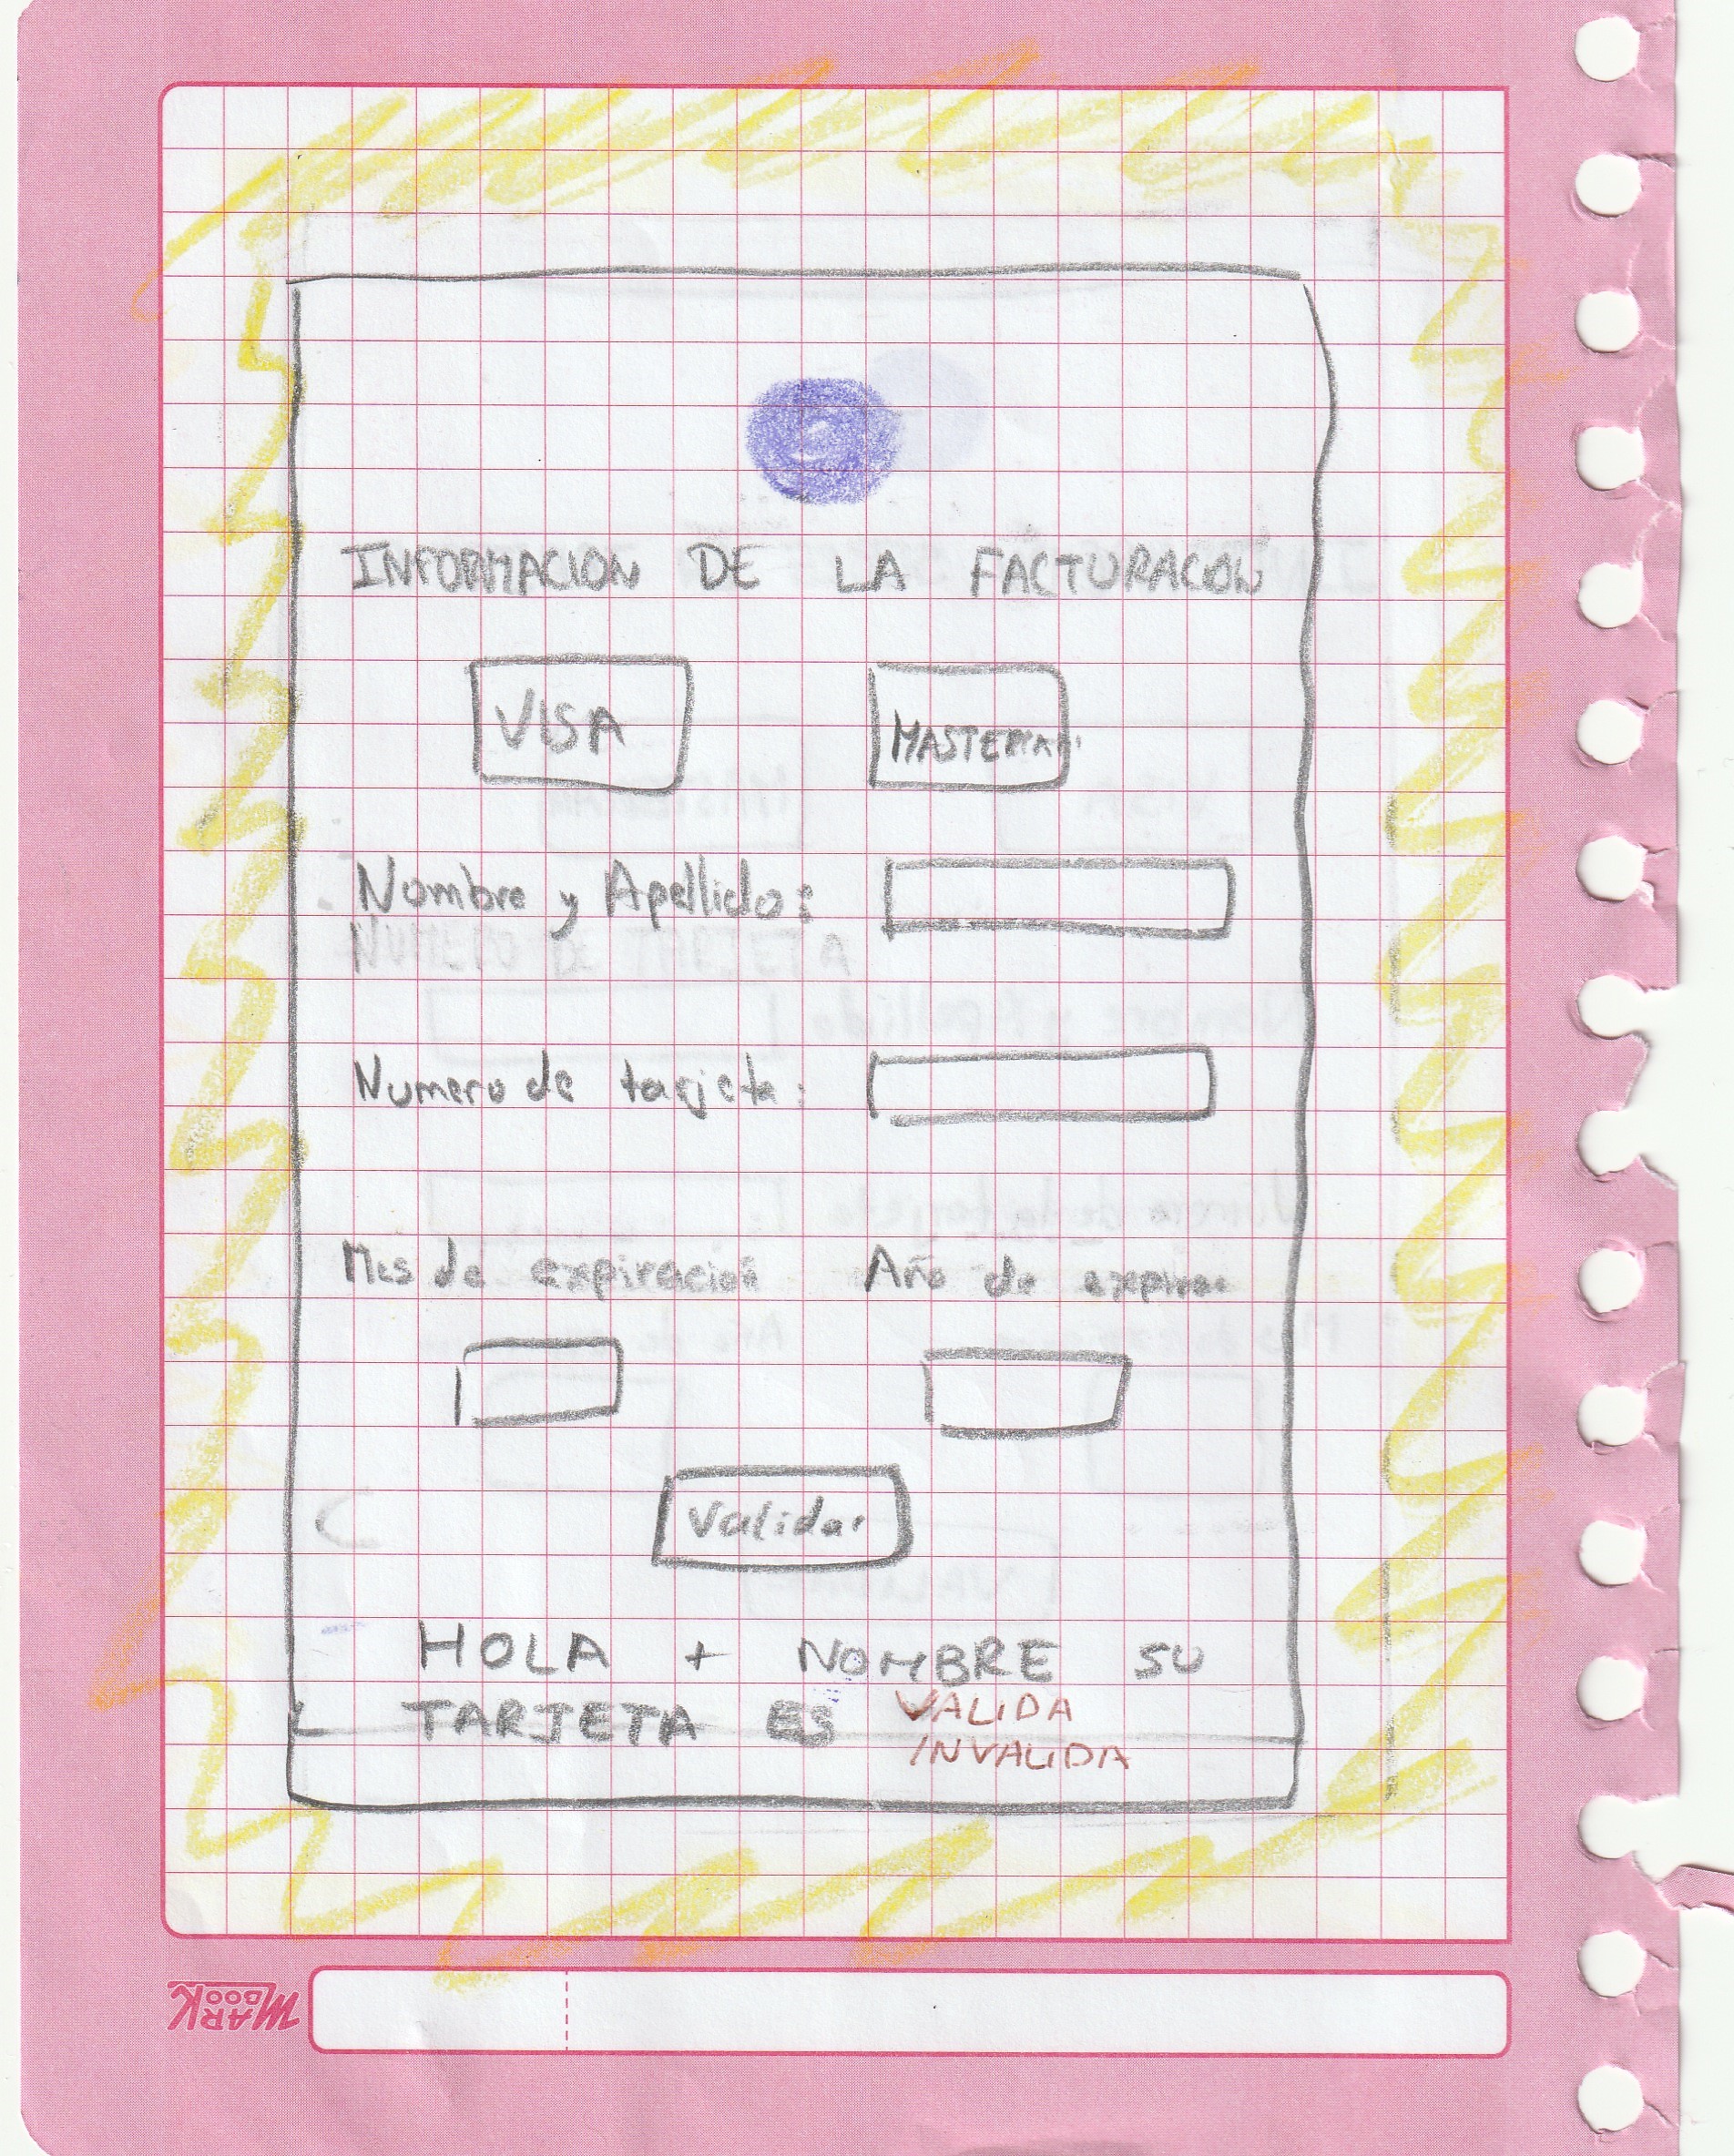 INFORMACION DE LA FACTURACION
VISA
MASTERCAR
Nombre y Apellido:
NUMERO DE TARJETA
Numero de tarjeta:
Mes de expiración
Año de expirac
Validar
HOLA + NOMBRE SU
TARJETA ES VALIDA
INVALIDA
MARK BOOK